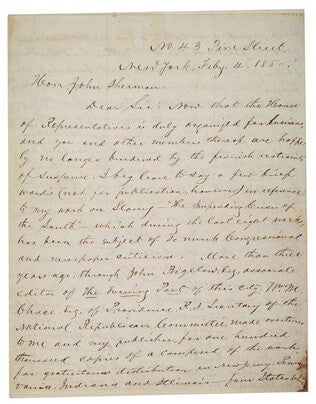 No 43 Pine Street,
New York, Feby. 4. 1860.
Hon. John Sherman.
Dear Sir: Now that the House
of Representatives is duly organized for business
and you and other members thereof are happi-
ly no longer burdened by the feverish restraints
of suspense, I beg leave to say a few brief
words (not for publication, however) in reference
to my work on Slavery—"The Impending Crisis of
the South"—which during the last eight weeks
has been the subject of so much Congressional
and newspaper criticism. More than three
years ago, through John Bigelow Esq. associate
editor of The Evening Post of this city, Wm M
Chace Esq. of Providence R.I. Secretary of the
National Republican Committee made overtures
to me and my publisher for one hundred
thousand copies of a compend of the work
for gratuitous distribution in New Jersey Penn
vania, Indiana and Illinois—four States